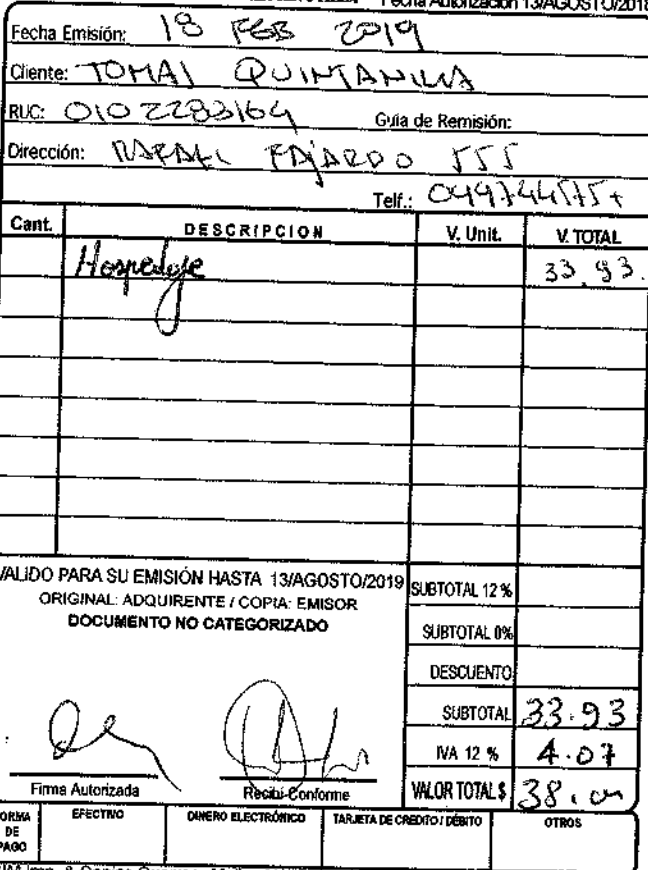 Fecha Autorización 13/AGOSTO/2018
Fecha Emisión: 18 FEB 2019
Cliente: TOMAS QUINTANILLA
RUC: 0102283164 Guía de Remisión:
Dirección: RAFAEL FAJARDO 555
Telf.:
Cant. DESCRIPCION V. Unit. V. TOTAL
Hospedaje 33.93.
VALIDO PARA SU EMISIÓN HASTA 13/AGOSTO/2019 SUBTOTAL 12 %
ORIGINAL: ADQUIRENTE / COPIA: EMISOR
DOCUMENTO NO CATEGORIZADO SUBTOTAL 0%
DESCUENTO
SUBTOTAL 33.93
IVA 12 % 4.07
Firma Autorizada Recibí Conforme VALOR TOTAL $ 38.00
FORMA DE PAGO EFECTIVO DINERO ELECTRÓNICO TARJETA DE CREDITO / DÉBITO OTROS